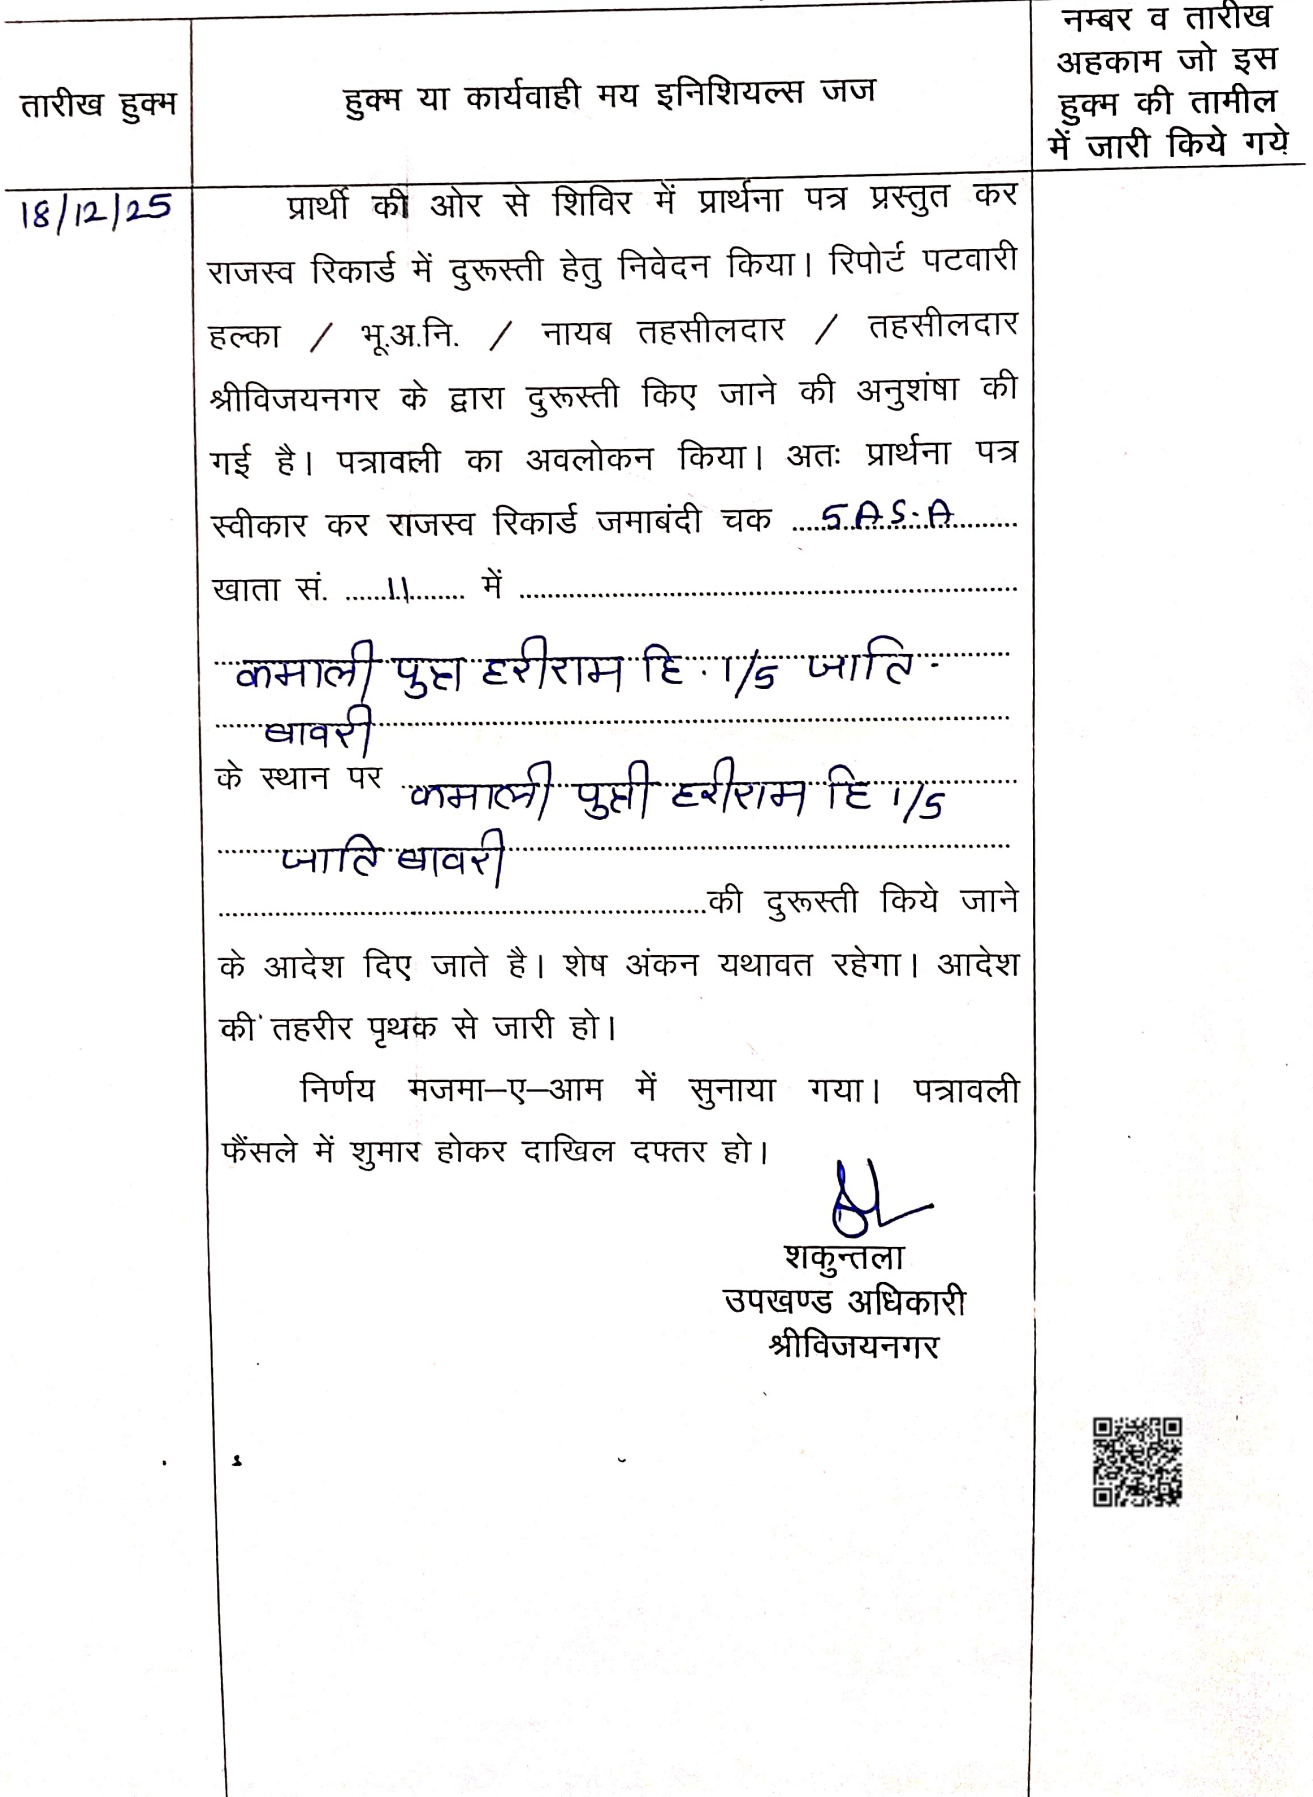 तारीख हुक्म
हुक्म या कार्यवाही मय इनिशियल्स जज
नम्बर व तारीख
अहकाम जो इस
हुक्म की तामील
में जारी किये गये
18/12/25
प्रार्थी की ओर से शिविर में प्रार्थना पत्र प्रस्तुत कर
राजस्व रिकार्ड में दुरूस्ती हेतु निवेदन किया। रिपोर्ट पटवारी
हल्का / भू.अ.नि. / नायब तहसीलदार / तहसीलदार
श्रीविजयनगर के द्वारा दुरूस्ती किए जाने की अनुशंषा की
गई है। पत्रावली का अवलोकन किया। अतः प्रार्थना पत्र
स्वीकार कर राजस्व रिकार्ड जमाबंदी चक ....5 A S.A....
खाता सं. ....11.... में ....
कमाली पुत्र हरीराम हि. 1/5 जाति
बावरी
के स्थान पर कमाली पुत्री हरीराम हि 1/5
जाति बावरी
....की दुरूस्ती किये जाने
के आदेश दिए जाते है। शेष अंकन यथावत रहेगा। आदेश
की तहरीर पृथक से जारी हो।
निर्णय मजमा–ए–आम में सुनाया गया। पत्रावली
फैंसले में शुमार होकर दाखिल दफ्तर हो।
शकुन्तला
उपखण्ड अधिकारी
श्रीविजयनगर